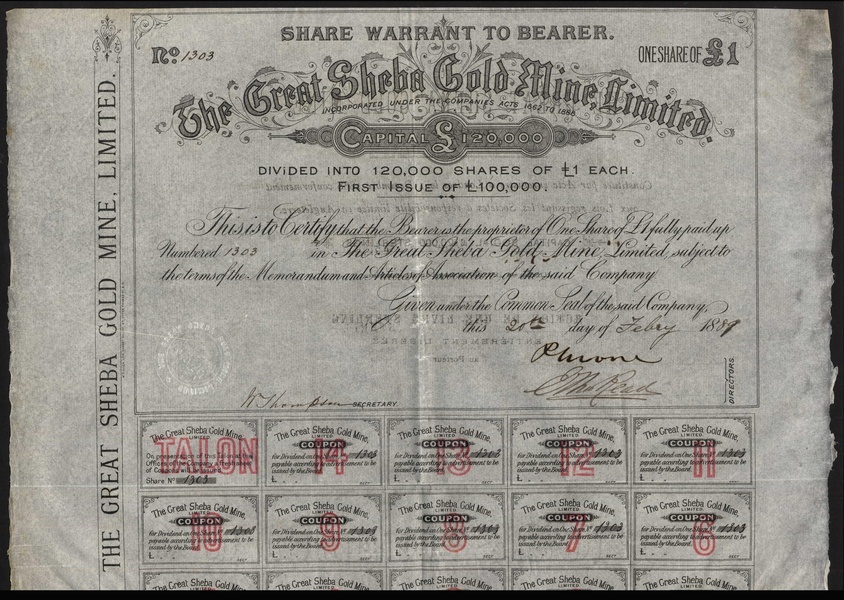 SHARE WARRANT TO BEARER.
No. 1303
ONE SHARE OF £1
The Great Sheba Gold Mine, Limited.
INCORPORATED UNDER THE COMPANIES ACTS 1862 TO 1886
CAPITAL £120,000
DIVIDED INTO 120,000 SHARES OF £1 EACH.
FIRST ISSUE OF £100,000.
This is to Certify that the Bearer is the proprietor of One Share of £1 fully paid up
Numbered 1303 in The Great Sheba Gold Mine, Limited, subject to
the terms of the Memorandum and Articles of Association of the said Company
Given under the Common Seal of the said Company,
this 20th day of Febry 1889
DIRECTORS.
W Thompson SECRETARY.
THE GREAT SHEBA GOLD MINE, LIMITED.
The Great Sheba Gold Mine,
LIMITED
TALON
Share No 1303
The Great Sheba Gold Mine,
LIMITED.
COUPON
14
for Dividend on One Share No 1303
payable according to advertisement to be
issued by the Board.
£ SECY
The Great Sheba Gold Mine,
LIMITED.
COUPON
13
for Dividend on One Share No 1303
payable according to advertisement to be
issued by the Board.
£ SECY
The Great Sheba Gold Mine,
LIMITED.
COUPON
12
for Dividend on One Share No 1303
payable according to advertisement to be
issued by the Board.
£ SECY
The Great Sheba Gold Mine,
LIMITED.
COUPON
11
for Dividend on One Share No 1303
payable according to advertisement to be
issued by the Board.
£ SECY
The Great Sheba Gold Mine,
LIMITED.
COUPON
10
for Dividend on One Share No 1303
payable according to advertisement to be
issued by the Board.
£ SECY
The Great Sheba Gold Mine,
LIMITED.
COUPON
9
for Dividend on One Share No 1303
payable according to advertisement to be
issued by the Board.
£ SECY
The Great Sheba Gold Mine,
LIMITED.
COUPON
8
for Dividend on One Share No 1303
payable according to advertisement to be
issued by the Board.
£ SECY
The Great Sheba Gold Mine,
LIMITED.
COUPON
7
for Dividend on One Share No 1303
payable according to advertisement to be
issued by the Board.
£ SECY
The Great Sheba Gold Mine,
LIMITED.
COUPON
6
for Dividend on One Share No 1303
payable according to advertisement to be
issued by the Board.
£ SECY
The Great Sheba Gold Mine,
The Great Sheba Gold Mine,
The Great Sheba Gold Mine,
The Great Sheba Gold Mine,
The Great Sheba Gold Mine,